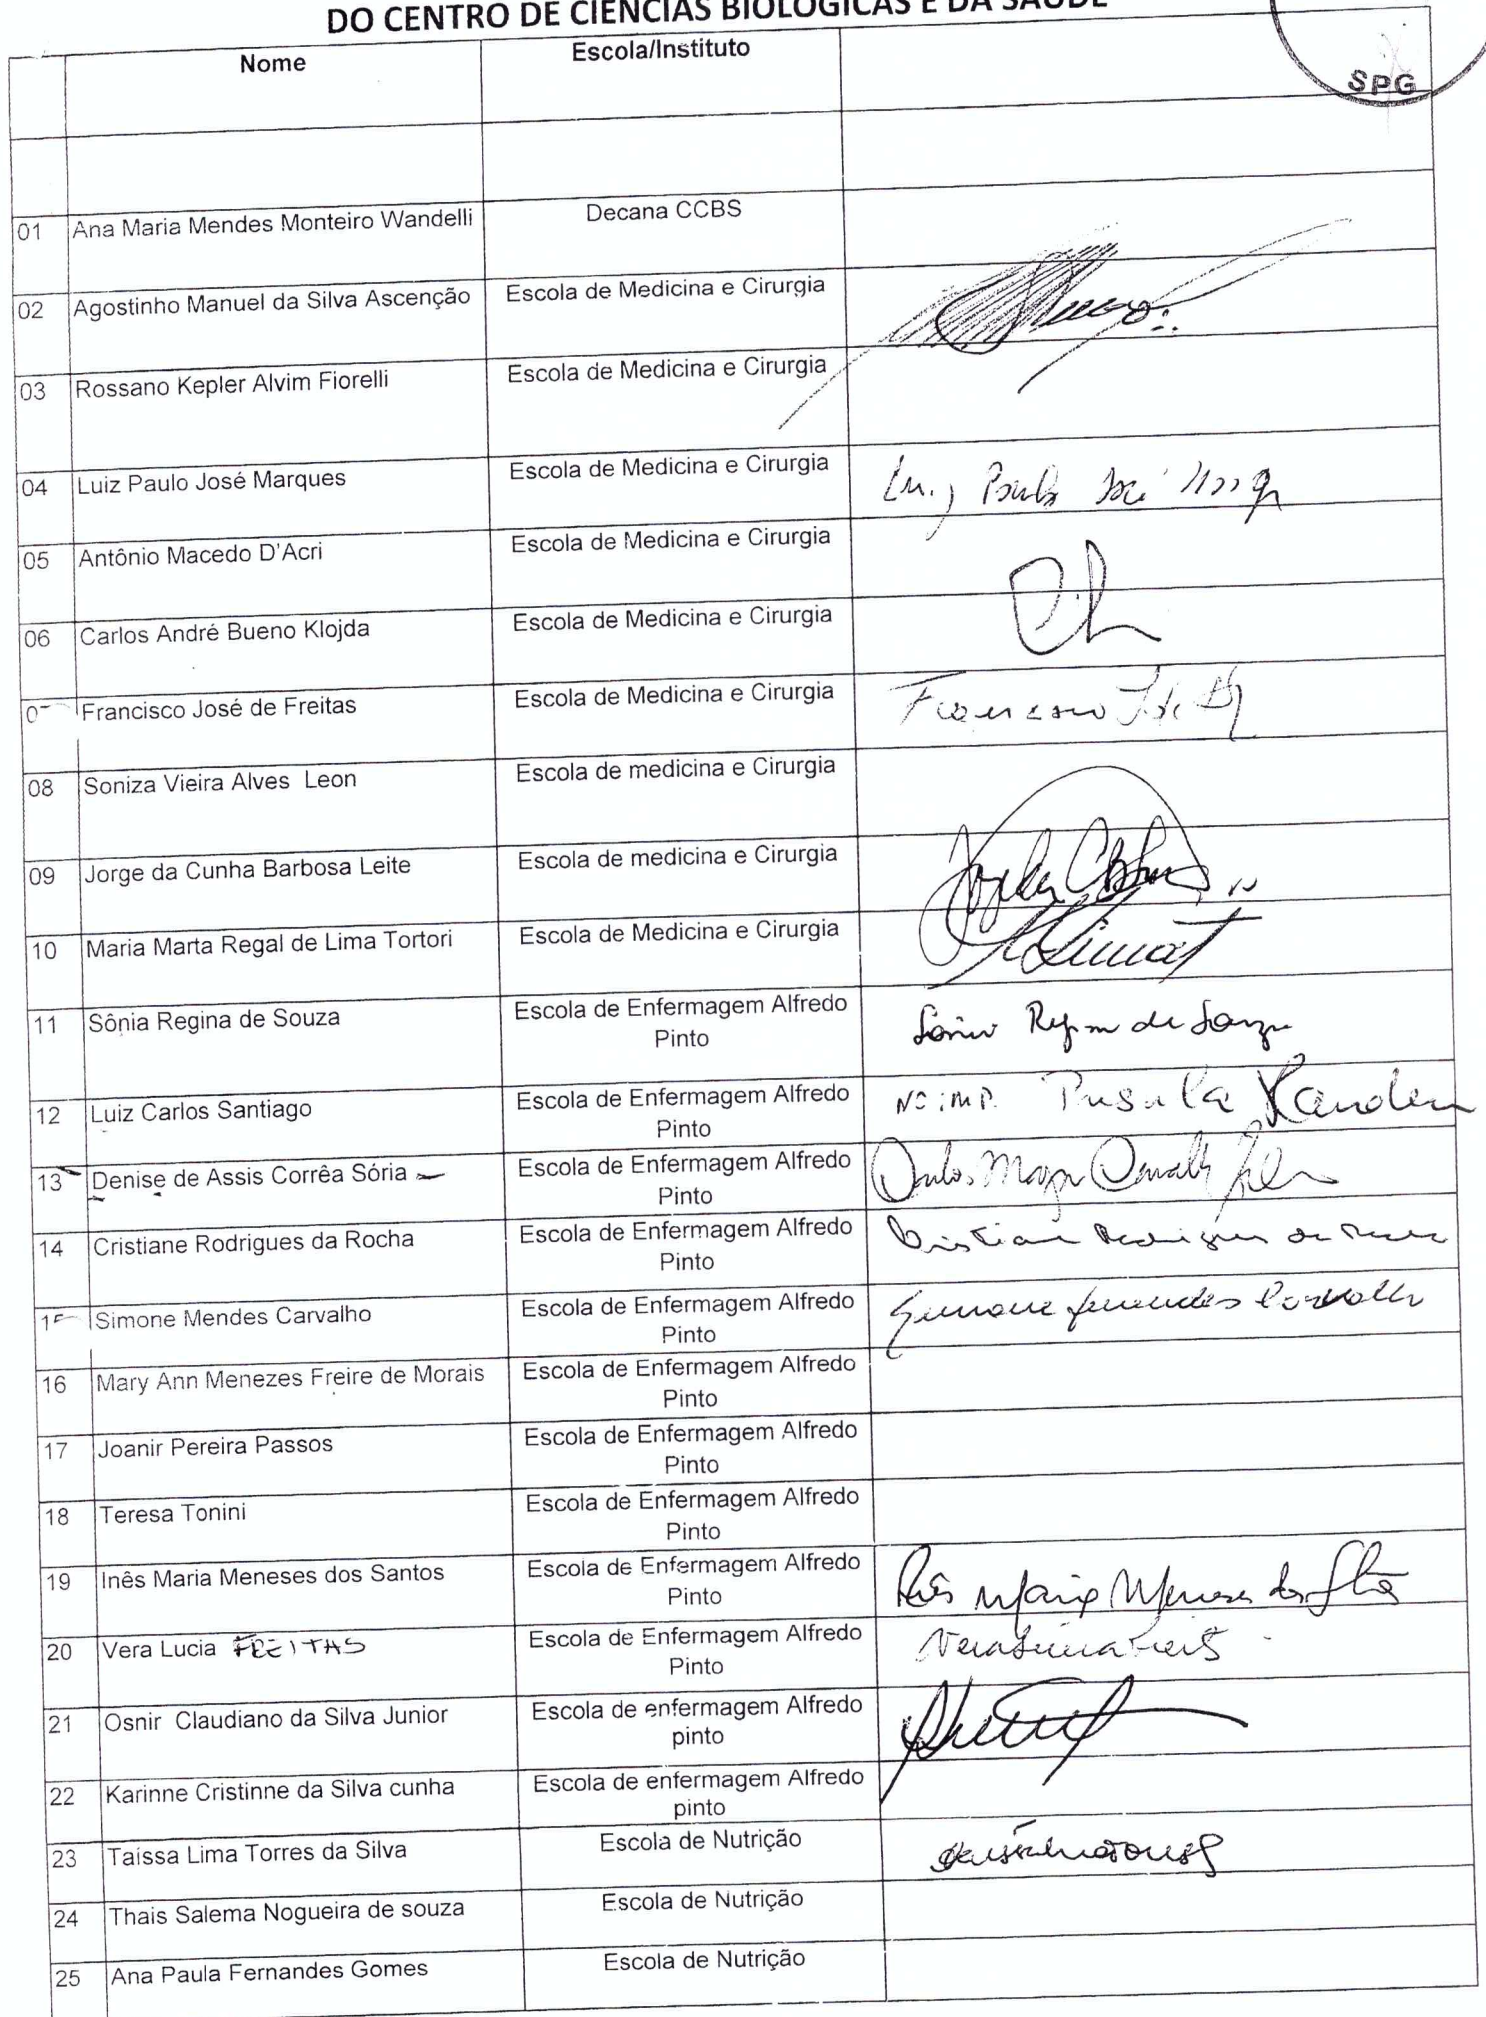 DO CENTRO DE CIÊNCIAS BIOLÓGICAS E DA SAÚDE
SPG
Nome Escola/Instituto
01 Ana Maria Mendes Monteiro Wandelli Decana CCBS
02 Agostinho Manuel da Silva Ascenção Escola de Medicina e Cirurgia
03 Rossano Kepler Alvim Fiorelli Escola de Medicina e Cirurgia
04 Luiz Paulo José Marques Escola de Medicina e Cirurgia
05 Antônio Macedo D'Acri Escola de Medicina e Cirurgia
06 Carlos André Bueno Klojda Escola de Medicina e Cirurgia
Francisco José de Freitas Escola de Medicina e Cirurgia
08 Soniza Vieira Alves Leon Escola de medicina e Cirurgia
09 Jorge da Cunha Barbosa Leite Escola de medicina e Cirurgia
10 Maria Marta Regal de Lima Tortori Escola de Medicina e Cirurgia
11 Sônia Regina de Souza Escola de Enfermagem Alfredo
Pinto
12 Luiz Carlos Santiago Escola de Enfermagem Alfredo
Pinto
13 Denise de Assis Corrêa Sória Escola de Enfermagem Alfredo
Pinto
14 Cristiane Rodrigues da Rocha Escola de Enfermagem Alfredo
Pinto
15 Simone Mendes Carvalho Escola de Enfermagem Alfredo
Pinto
16 Mary Ann Menezes Freire de Morais Escola de Enfermagem Alfredo
Pinto
17 Joanir Pereira Passos Escola de Enfermagem Alfredo
Pinto
18 Teresa Tonini Escola de Enfermagem Alfredo
Pinto
19 Inês Maria Meneses dos Santos Escola de Enfermagem Alfredo
Pinto
20 Vera Lucia FREITAS Escola de Enfermagem Alfredo
Pinto
21 Osnir Claudiano da Silva Junior Escola de enfermagem Alfredo
pinto
22 Karinne Cristinne da Silva cunha Escola de enfermagem Alfredo
pinto
23 Taissa Lima Torres da Silva Escola de Nutrição
24 Thais Salema Nogueira de souza Escola de Nutrição
25 Ana Paula Fernandes Gomes Escola de Nutrição